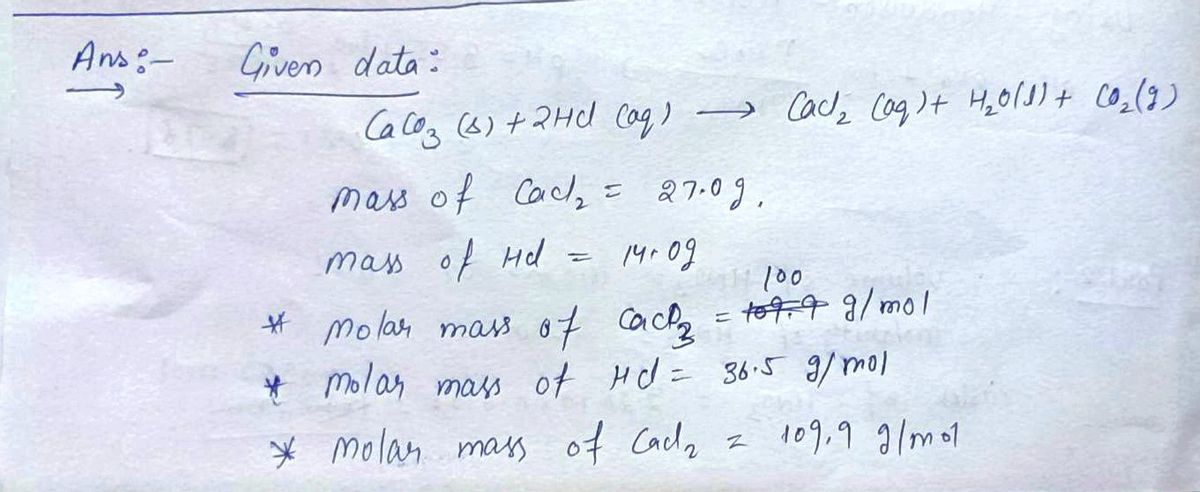 Ans:- Given data:
CaCO3 (s) + 2HCl (aq) → CaCl2 (aq) + H2O(l) + CO2(g)
mass of CaCl2 = 27.0g.
mass of HCl = 14.0g
* Molar mass of CaCO3 = 100 g/mol
* Molar mass of HCl = 36.5 g/mol
* Molar mass of CaCl2 = 109.9 g/mol